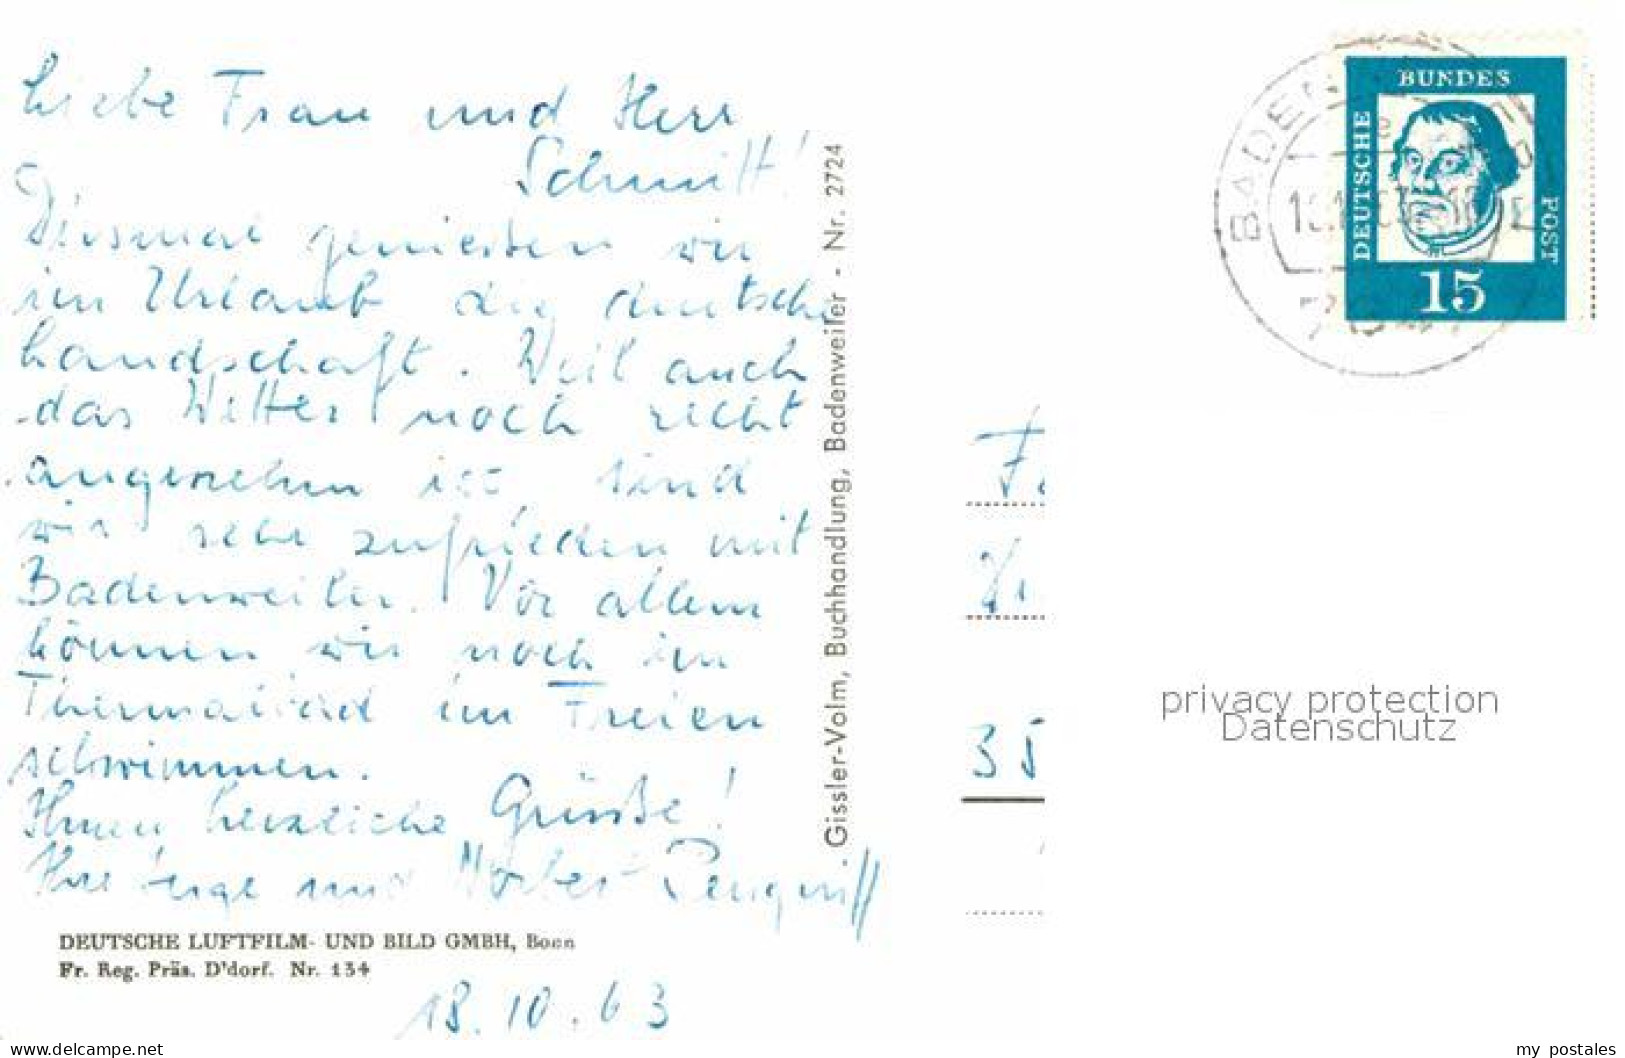 Liebe Frau und Herr
Schmitt!
Diesmal genießen wir
im Urlaub die deutsche
Landschaft. Weil auch
das Wetter noch recht
angenehm ist, sind
wir sehr zufrieden mit
Badenweiler. Vor allem
können wir noch im
Thermalbad im Freien
schwimmen.
Ihnen herzliche Grüße!
Ihre und Norbert
DEUTSCHE LUFTFILM- UND BILD GMBH, Bonn
Fr. Reg. Präs. D'dorf. Nr. 134
18.10.63
Gissler-Volm, Buchhandlung, Badenweiler - Nr. 2724
BUNDES
DEUTSCHE
POST
15
BADEN
35
privacy protection
Datenschutz
www.delcampe.net
my_postales